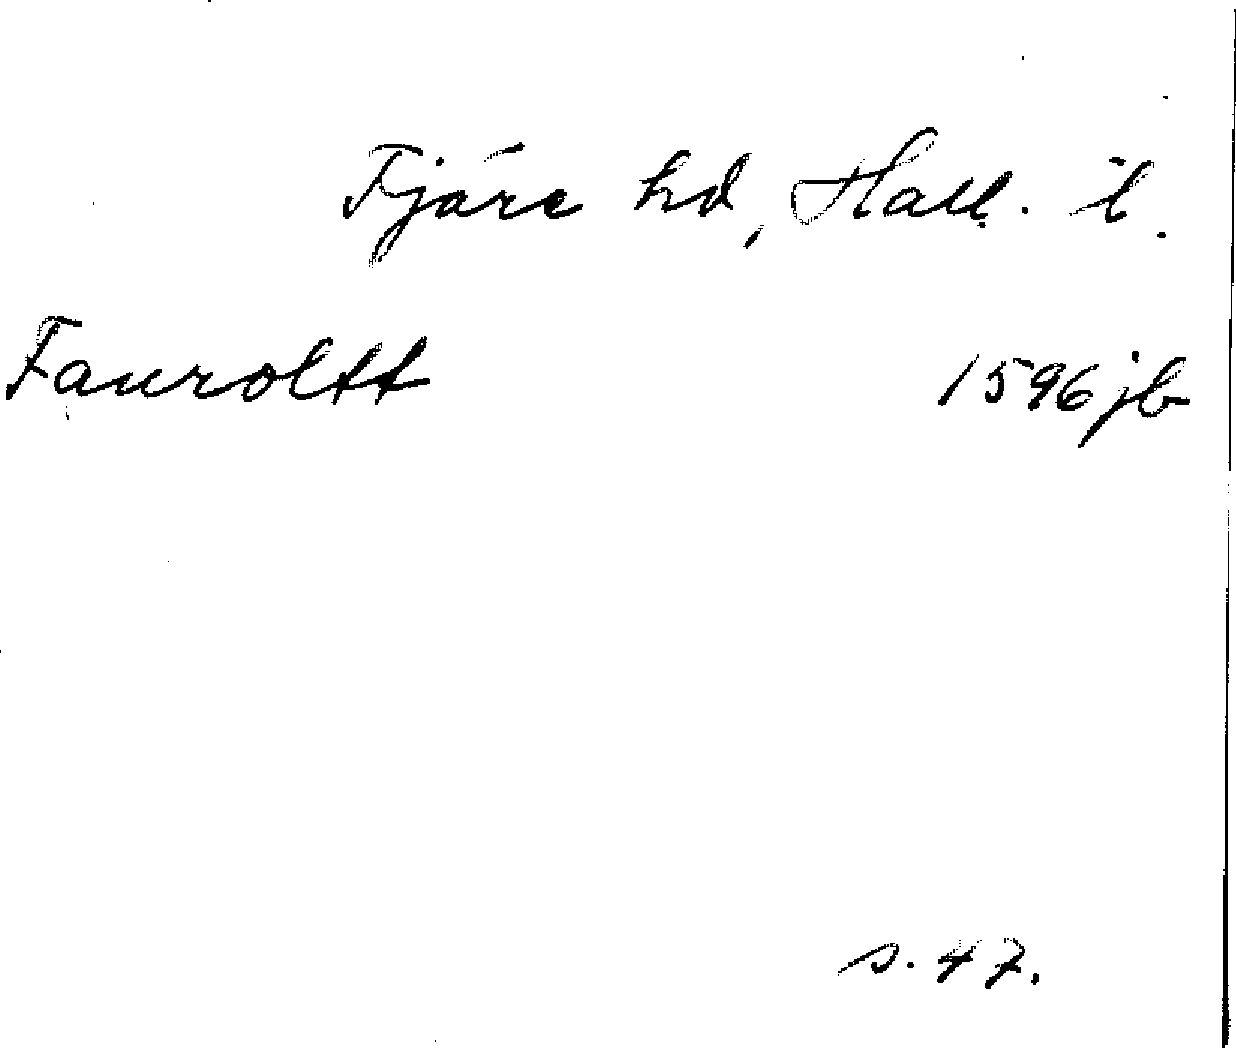 Fjäre hd, Hall. l.
Fauroltt
1596 jb
s. 47.